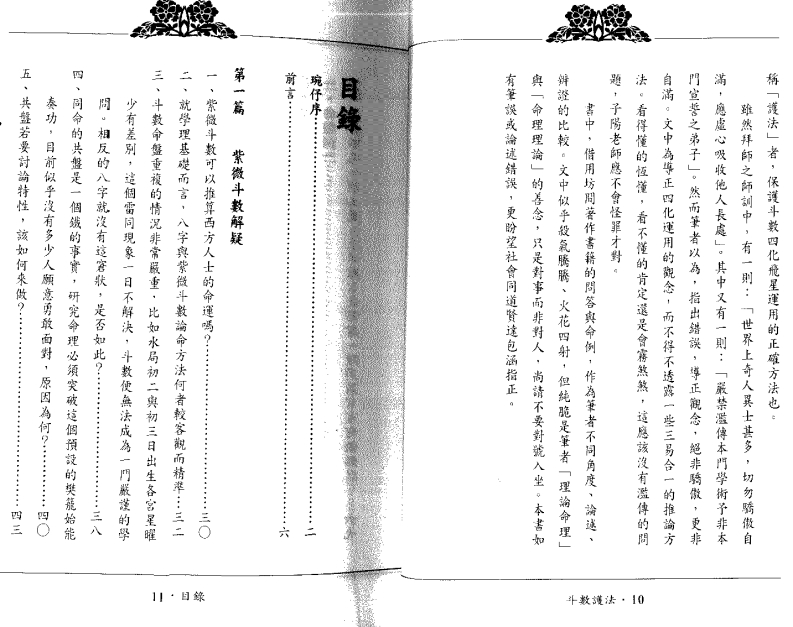 稱「護法」者，保護斗數四化飛星運用的正確方法也。
雖然拜師之師訓中，有一則：「世界上奇人異士甚多，切勿驕傲自
滿，應虛心吸收他人長處」。其中又有一則：「嚴禁濫傳本門學術予非本
門宣誓之弟子」。然而筆者以為，指出錯誤，導正觀念，絕非驕傲，更非
自滿。文中為導正四化運用的觀念，而不得不透露一些三易合一的推論方
法。看得懂的恆懂，看不懂的肯定還是會霧煞煞，這應該沒有濫傳的問
題，子陽老師應不會怪罪才對。
書中，借用坊間著作書籍的問答與命例，作為筆者不同角度、論述、
辯證的比較。文中似乎殺氣騰騰、火花四射，但純脆是筆者「理論命理」
與「命理理論」的善念，只是對事而非對人，尚請不要對號入坐。本書如
有筆誤或論述錯誤，更盼望社會同道賢達包涵指正。
斗數護法・10
目錄
琬仔序………………二
前言………………六
第一篇　紫微斗數解疑
一、紫微斗數可以推算西方人士的命運嗎？………三〇
二、就學理基礎而言，八字與紫微斗數論命方法何者較客觀而精準…三二
三、斗數命盤重複的情況非常嚴重，比如水局初二與初三日出生各宮星曜
少有差別，這個雷同現象一日不解決，斗數便無法成為一門嚴謹的學
問。相反的八字就沒有這窘狀，是否如此？………三八
四、同命的共盤是一個鐵的事實，研究命理必須突破這個預設的樊籠始能
奏功，目前似乎沒有多少人願意勇敢面對，原因為何？………四〇
五、共盤若要討論特性，該如何來做？………四三
11・目錄